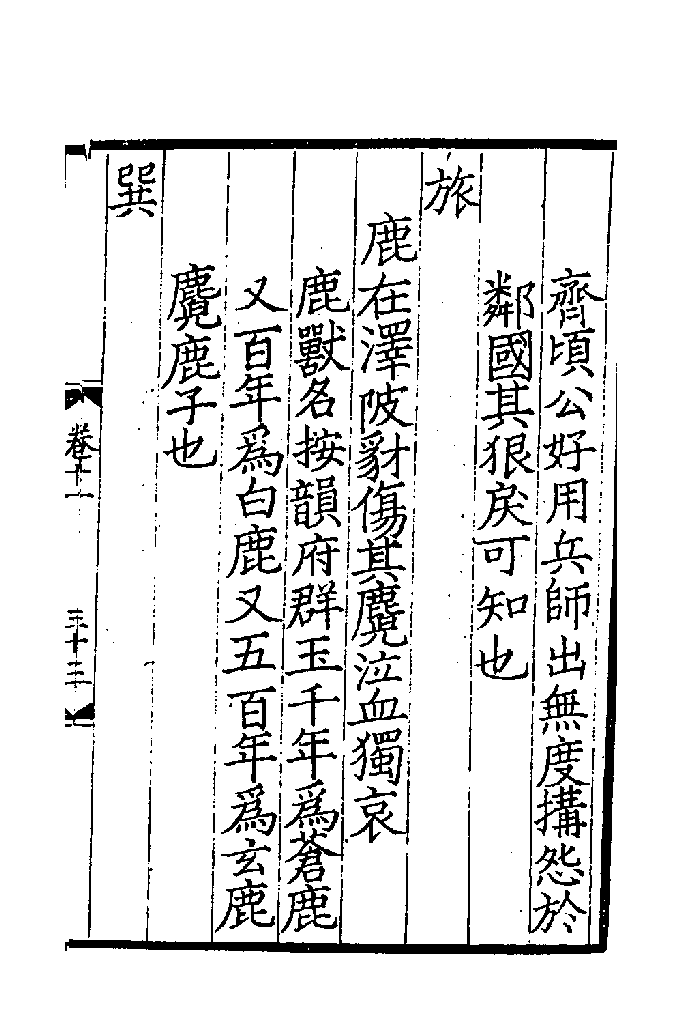 齊頃公好用兵師出無度搆怨於
鄰國其狠戾可知也
旅
鹿在澤陂豺傷其麑泣血獨哀
鹿獸名按韻府群玉千年爲蒼鹿
又百年爲白鹿又五百年爲玄鹿
麑鹿子也
巽
卷十一
三十三